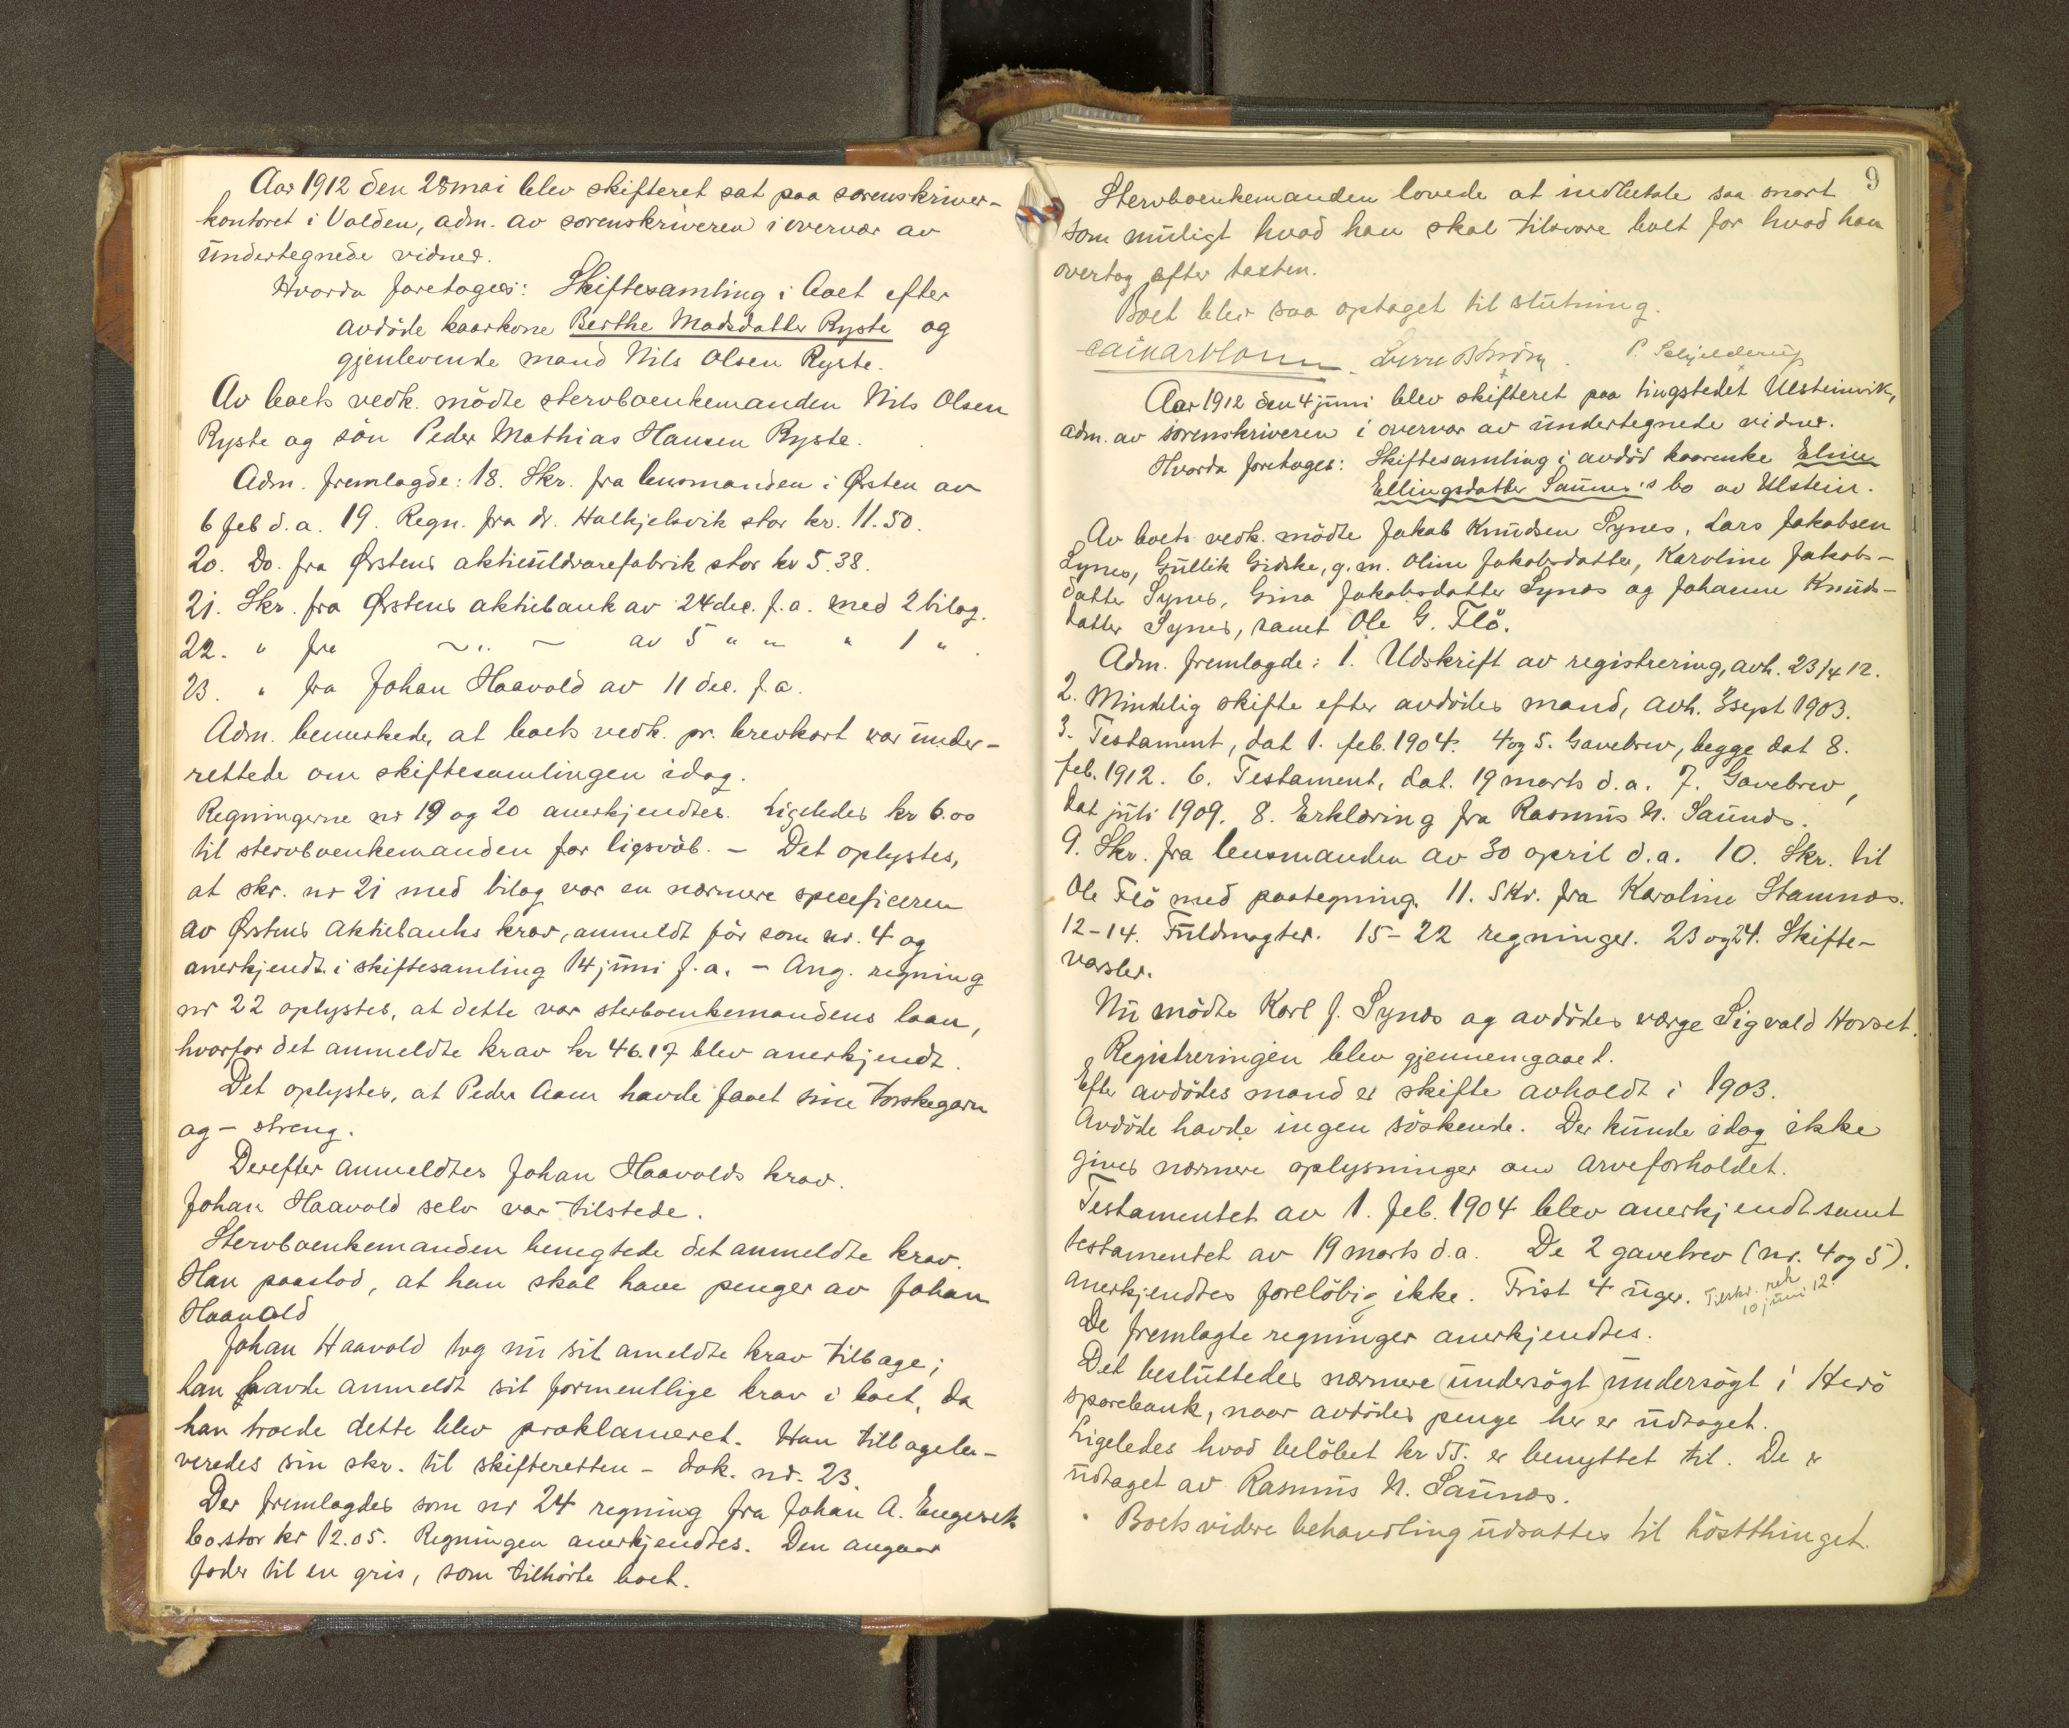 Aar 1912 den 28 mai blev skifteret sat paa sorenskriver-
kontoret i Volden, adm. av sorenskriveren i overvær av
undertegnede vidner.
Hvorda foretoges: Skiftesamling i boet efter
avdöde kaarkone Berthe Madsdatter Ryste og
gjenlevende mand Nils Olsen Ryste.
Av boets vedk. mödte stervboenkemanden Nils Olsen
Ryste og sön Peder Mathias Hansen Ryste.
Adm. fremlagde: 18. Skr. fra lensmanden i Ørsten av
6 feb d.a. 19. Regn. fra dr. Halkjelsvik stor kr. 11.50.
20. Do. fra Ørstens aktieuldvarefabrik stor kr 5.38.
21. Skr. fra Ørstens aktiebank av 24 dec. f.a. med 2 bilag.
22. " fra ~ " ~ av 5 " " " 1 " .
23. " fra Johan Haavold av 11 dec. f.a.
Adm. bemerkede, at boets vedk. pr. brevkort var under-
rettede om skiftesamlingen idag.
Regningerne nr 19 og 20 anerkjendtes. Ligeledes kr 6.00
til stervboenkemanden for ligsvöb. - Det oplystes,
at skr. nr 21 med bilag var en nærmere specificeren
av Ørstens aktiebanks krav, anmeldt för som nr. 4 og
anerkjendt i skiftesamling 14 juni f.a. - Ang. regning
nr 22 oplystes, at dette var sterboenkemandens laan,
hvorfor det anmeldte krav kr 46.17 blev anerkjendt.
Det oplystes, at Peder Aam havde faaet sine torskegarn
og - streng.
Derefter anmeldtes Johan Haavolds krav.
Johan Haavold selv var tilstede.
Stervboenkemanden benegtede det anmeldte krav.
Han paastod, at han skal have penger av Johan
Haavold
Johan Haavold tog nu sit ameldte krav tilbage;
han havde anmeldt sit formentlige krav i boet, da
han troede dette blev proklameret. Han tilbagele-
veredes sin skr. til skifteretten - dok. nr. 23.
Der fremlagdes som nr 24 regning fra Johan A. Engeset
bo stor kr 12.05. Regningen anerkjendtes. Den angaar
foder til en gris, som tilhörte boet.
9
Stervboenkemanden lovede at indbetale saa snart
som muligt hvad han skal tilsvare boet for hvad han
overtog efter taxten.
Boet blev saa optaget til slutning.
P. Schjelderup
Aar 1912 den 4 juni blev skifteret paa tingstedet Ulsteinvik,
adm. av sorenskriveren i overvær av undertegnede vidner.
Hvorda foretages: Skiftesamling i avdöd kaarenke Eline
Ellingsdatter Saunes's bo av Ulstein.
Av boets vedk. mödte Jakob Knudsen Synes, Lars Jakobsen
Synes, Gullik Gidske, g.m. Oline Jakobsdatter, Karoline Jakobs-
datter Synes, Gina Jakobsdatter Synes og Johanne Knuds-
datter Synes, samt Ole G. Flö.
Adm. fremlagde: 1. Udskrift av registrering, avh. 23/4 12.
2. Mindelig skifte efter avdödes mand, avh. 3 sept 1903.
3. Testament, dat 1. feb. 1904. 4 og 5. Gavebrev, begge dat 8.
feb. 1912. 6. Testament, dat. 19 marts d.a. 7. Gavebrev,
dat juli 1909. 8. Erklæring fra Rasmus N. Saunes.
9. Skr. fra lensmanden av 30 april d.a. 10. Skr. til
Ole Flö med paategning. 11. Skr. fra Karoline Stamnes.
12-14. Fuldmagter. 15-22 regninger. 23 og 24. Skifte-
varsler.
Nu mödte Karl J. Synes og avdödes værge Sigvald Hovset.
Registreringen blev gjennemgaaet.
Efter avdödes mand er skifte avholdt i 1903.
Avdöde havde ingen söskende. Der kunde idag ikke
gives nærmere oplysninger om arveforholdet.
Testamentet av 1. feb. 1904 blev anerkjendt samt
testamentet av 19 marts d.a. De 2 gavebrev (nr. 4 og 5).
anerkjendtes forelöbig ikke. Frist 4 uger. Tilskr. reh
10 juni 12
De fremlagte regninger anerkjendtes.
Det besluttedes nærmere (undersögt) undersögt i Herö
sparebank, naar avdödes penge her er udtaget.
Ligeledes hvad belöbet kr 55. er benyttet til. De er
udtaget av Rasmus N. Saunes.
Boets videre behandling udsattes til höstthinget.